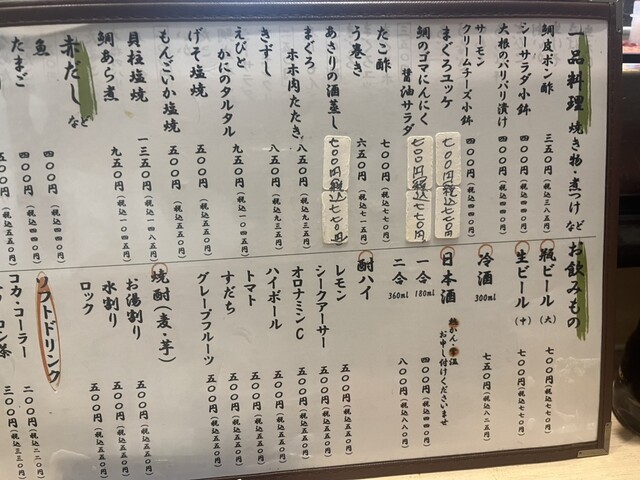 一品料理 焼き物・煮つけなど
鯛皮ポン酢 三五〇円(税込三八五円)
シーサラダ小鉢 四〇〇円(税込四四〇円)
大根のパリパリ漬け 四〇〇円(税込四四〇円)
サーモン
クリームチーズ小鉢 四〇〇円(税込四四〇円)
まぐろユッケ 七〇〇円(税込七七〇円)
鯛のゴマにんにく
醤油サラダ 七〇〇円(税込七七〇円)
たこ酢 七〇〇円(税込七七〇円)
う巻き 六五〇円(税込七一五円)
あさりの酒蒸し 七〇〇円(税込七七〇円)
まぐろ
ホホ肉たたき 八五〇円(税込九三五円)
きずし 八五〇円(税込九三五円)
えびと
かにのタルタル 九五〇円(税込一〇四五円)
げそ塩焼 五〇〇円(税込五五〇円)
もんごいか塩焼 五〇〇円(税込五五〇円)
貝柱塩焼 一三五〇円(税込一四八五円)
鯛あら煮 九五〇円(税込一〇四五円)
赤だし など
魚 四〇〇円(税込四四〇円)
たまご 四〇〇円(税込四四〇円)
お飲みもの
瓶ビール(大) 七〇〇円(税込七七〇円)
生ビール(中) 七〇〇円(税込七七〇円)
冷酒 300ml 七五〇円(税込八二五円)
日本酒 熱かん・常温
お申し付けくださいませ
一合 180ml 四〇〇円(税込四四〇円)
二合 360ml 八〇〇円(税込八八〇円)
酎ハイ
レモン 五〇〇円(税込五五〇円)
シークアーサー 五〇〇円(税込五五〇円)
オロナミンC 五〇〇円(税込五五〇円)
ハイボール 五〇〇円(税込五五〇円)
トマト 五〇〇円(税込五五〇円)
すだち 五〇〇円(税込五五〇円)
グレープフルーツ 五〇〇円(税込五五〇円)
焼酎(麦・芋)
お湯割り 五〇〇円(税込五五〇円)
水割り 五〇〇円(税込五五〇円)
ロック 五〇〇円(税込五五〇円)
ソフトドリンク
コカ・コーラー 二〇〇円(税込二二〇円)
三〇〇円(税込三三〇円)